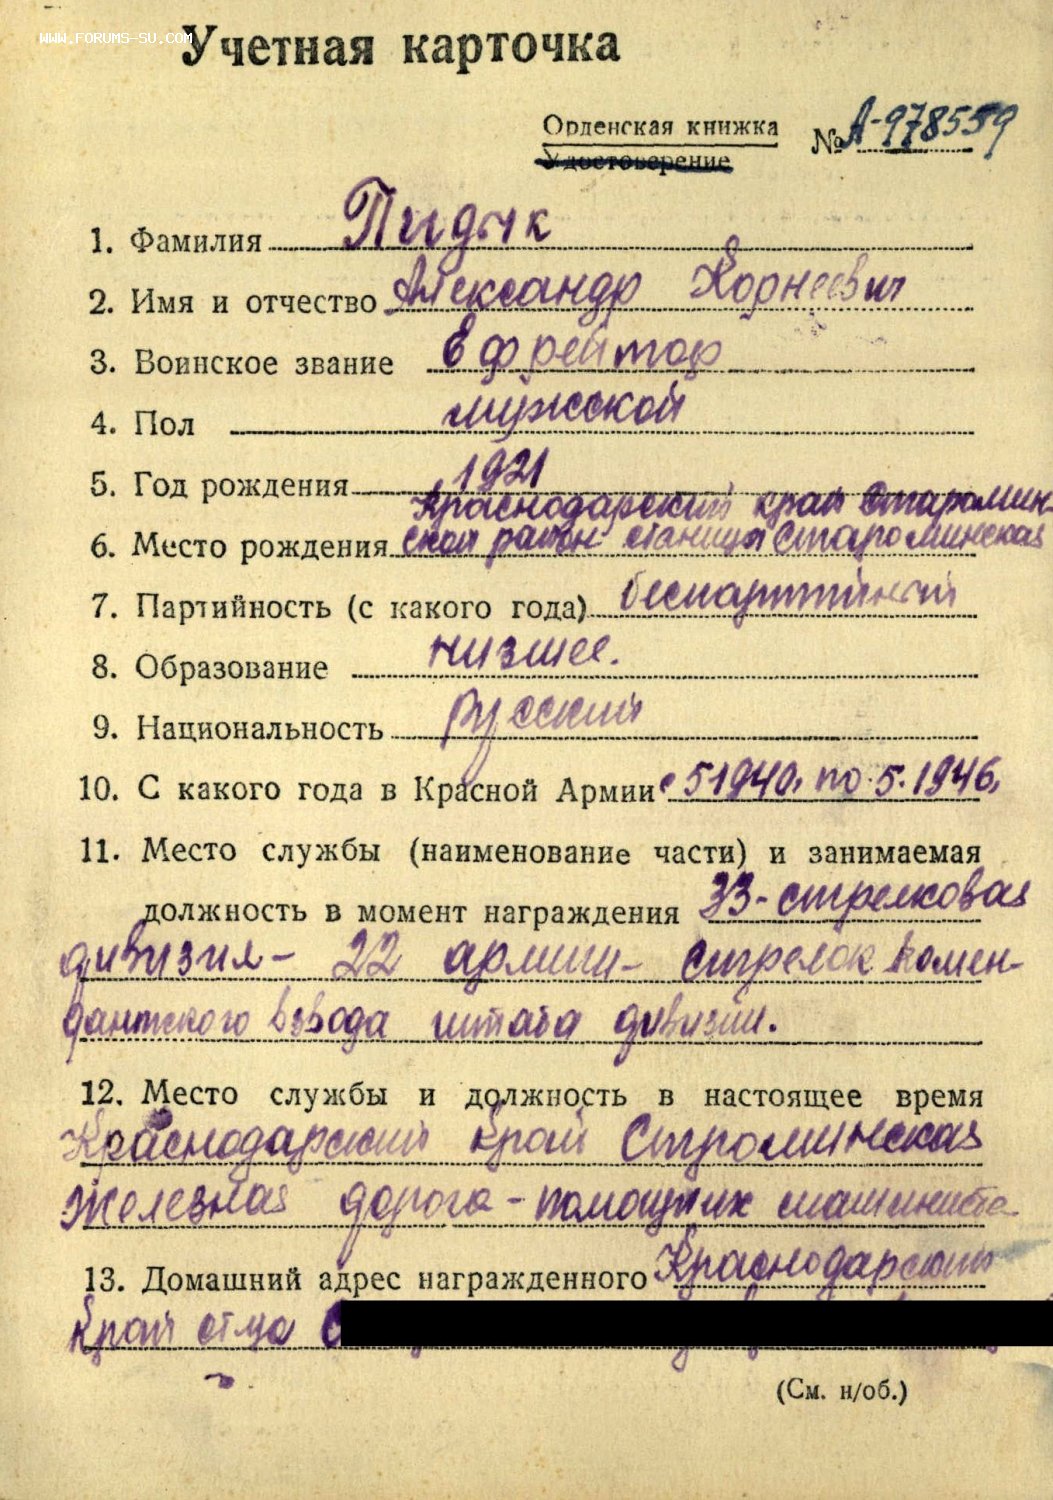 WWW.FORUMS-SU.COM
Учетная карточка
Орденская книжка № А-978559
Удостоверение
1. Фамилия Пидык
2. Имя и отчество Александр Корнеевич
3. Воинское звание Ефрейтор
4. Пол мужской
5. Год рождения 1921
Краснодарский край Старомин-
6. Место рождения ской район станица Староминская
7. Партийность (с какого года) беспартийный
8. Образование низшее.
9. Национальность русский
10. С какого года в Красной Армии с 5 1940, по 5. 1946,
11. Место службы (наименование части) и занимаемая
должность в момент награждения 33-стрелковая
дивизия- 22 армии- стрелок комен-
дантского взвода штаба дивизии.
12. Место службы и должность в настоящее время
Краснодарский край Строминская
железная дорога - помощник машиниста
13. Домашний адрес награжденного Краснодарский
край ст-ца
(См. н/об.)